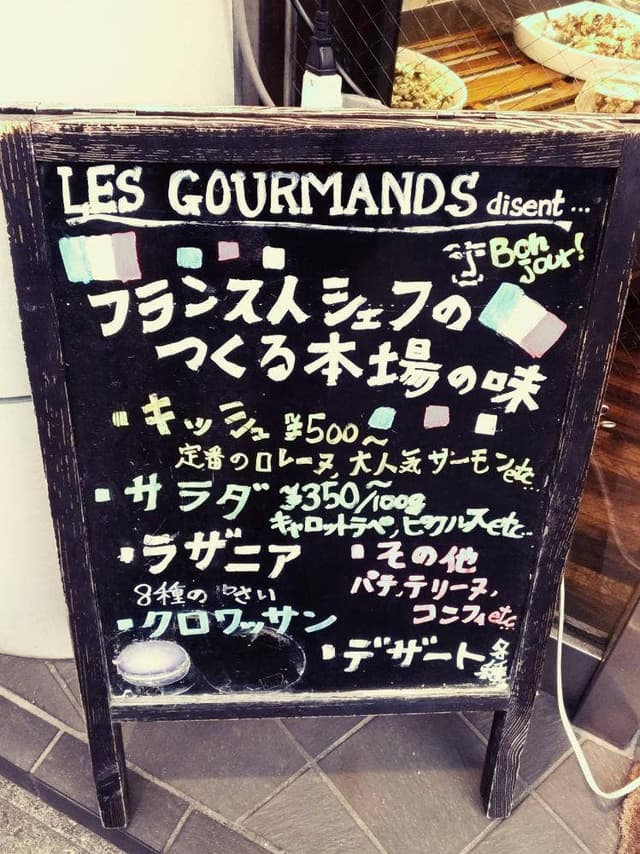 LES GOURMANDS disent...
Bon jour!
フランス人シェフの
つくる本場の味
キッシュ ¥500〜
定番のロレーヌ、大人気サーモンetc...
サラダ ¥350〜/100g
キャロットラペ、ピクルスetc...
ラザニア
8種の やさい
クロワッサン
その他
パテ、テリーヌ、
コンフィetc...
デザート各種